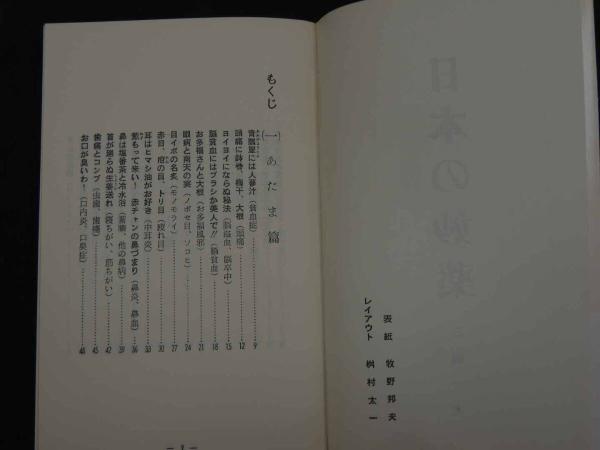 日本の妙薬
表紙 牧野邦夫
レイアウト 桝村太一
もくじ
(一) あたま篇
青瓢箪には人蔘汁(貧血症)……9
頭痛に鉢巻、梅干、大根(頭痛)……12
ヨイヨイにならぬ秘法(脳溢血、脳卒中)……15
脳貧血にはブラシか美人で!!(脳貧血)……18
お多福さんと大根(お多福風邪)……21
眼病と南天の実(ノボセ目、ソコヒ)……24
目イボの名灸(モノモライ)……27
赤目、疳の目、トリ目(疲れ目)……30
耳はヒマシ油がお好き(中耳炎)……33
葱もって来い! 赤チャンの鼻づまり(鼻炎、鼻血)……36
鼻は塩番茶と冷水浴(蓄膿、他の鼻病)……39
首が廻らぬ生姜送れ(寝ちがい、筋ちがい)……42
歯痛とコンブ(虫歯、歯槽)……45
お口が臭いわ!(口内炎、口臭症)……48